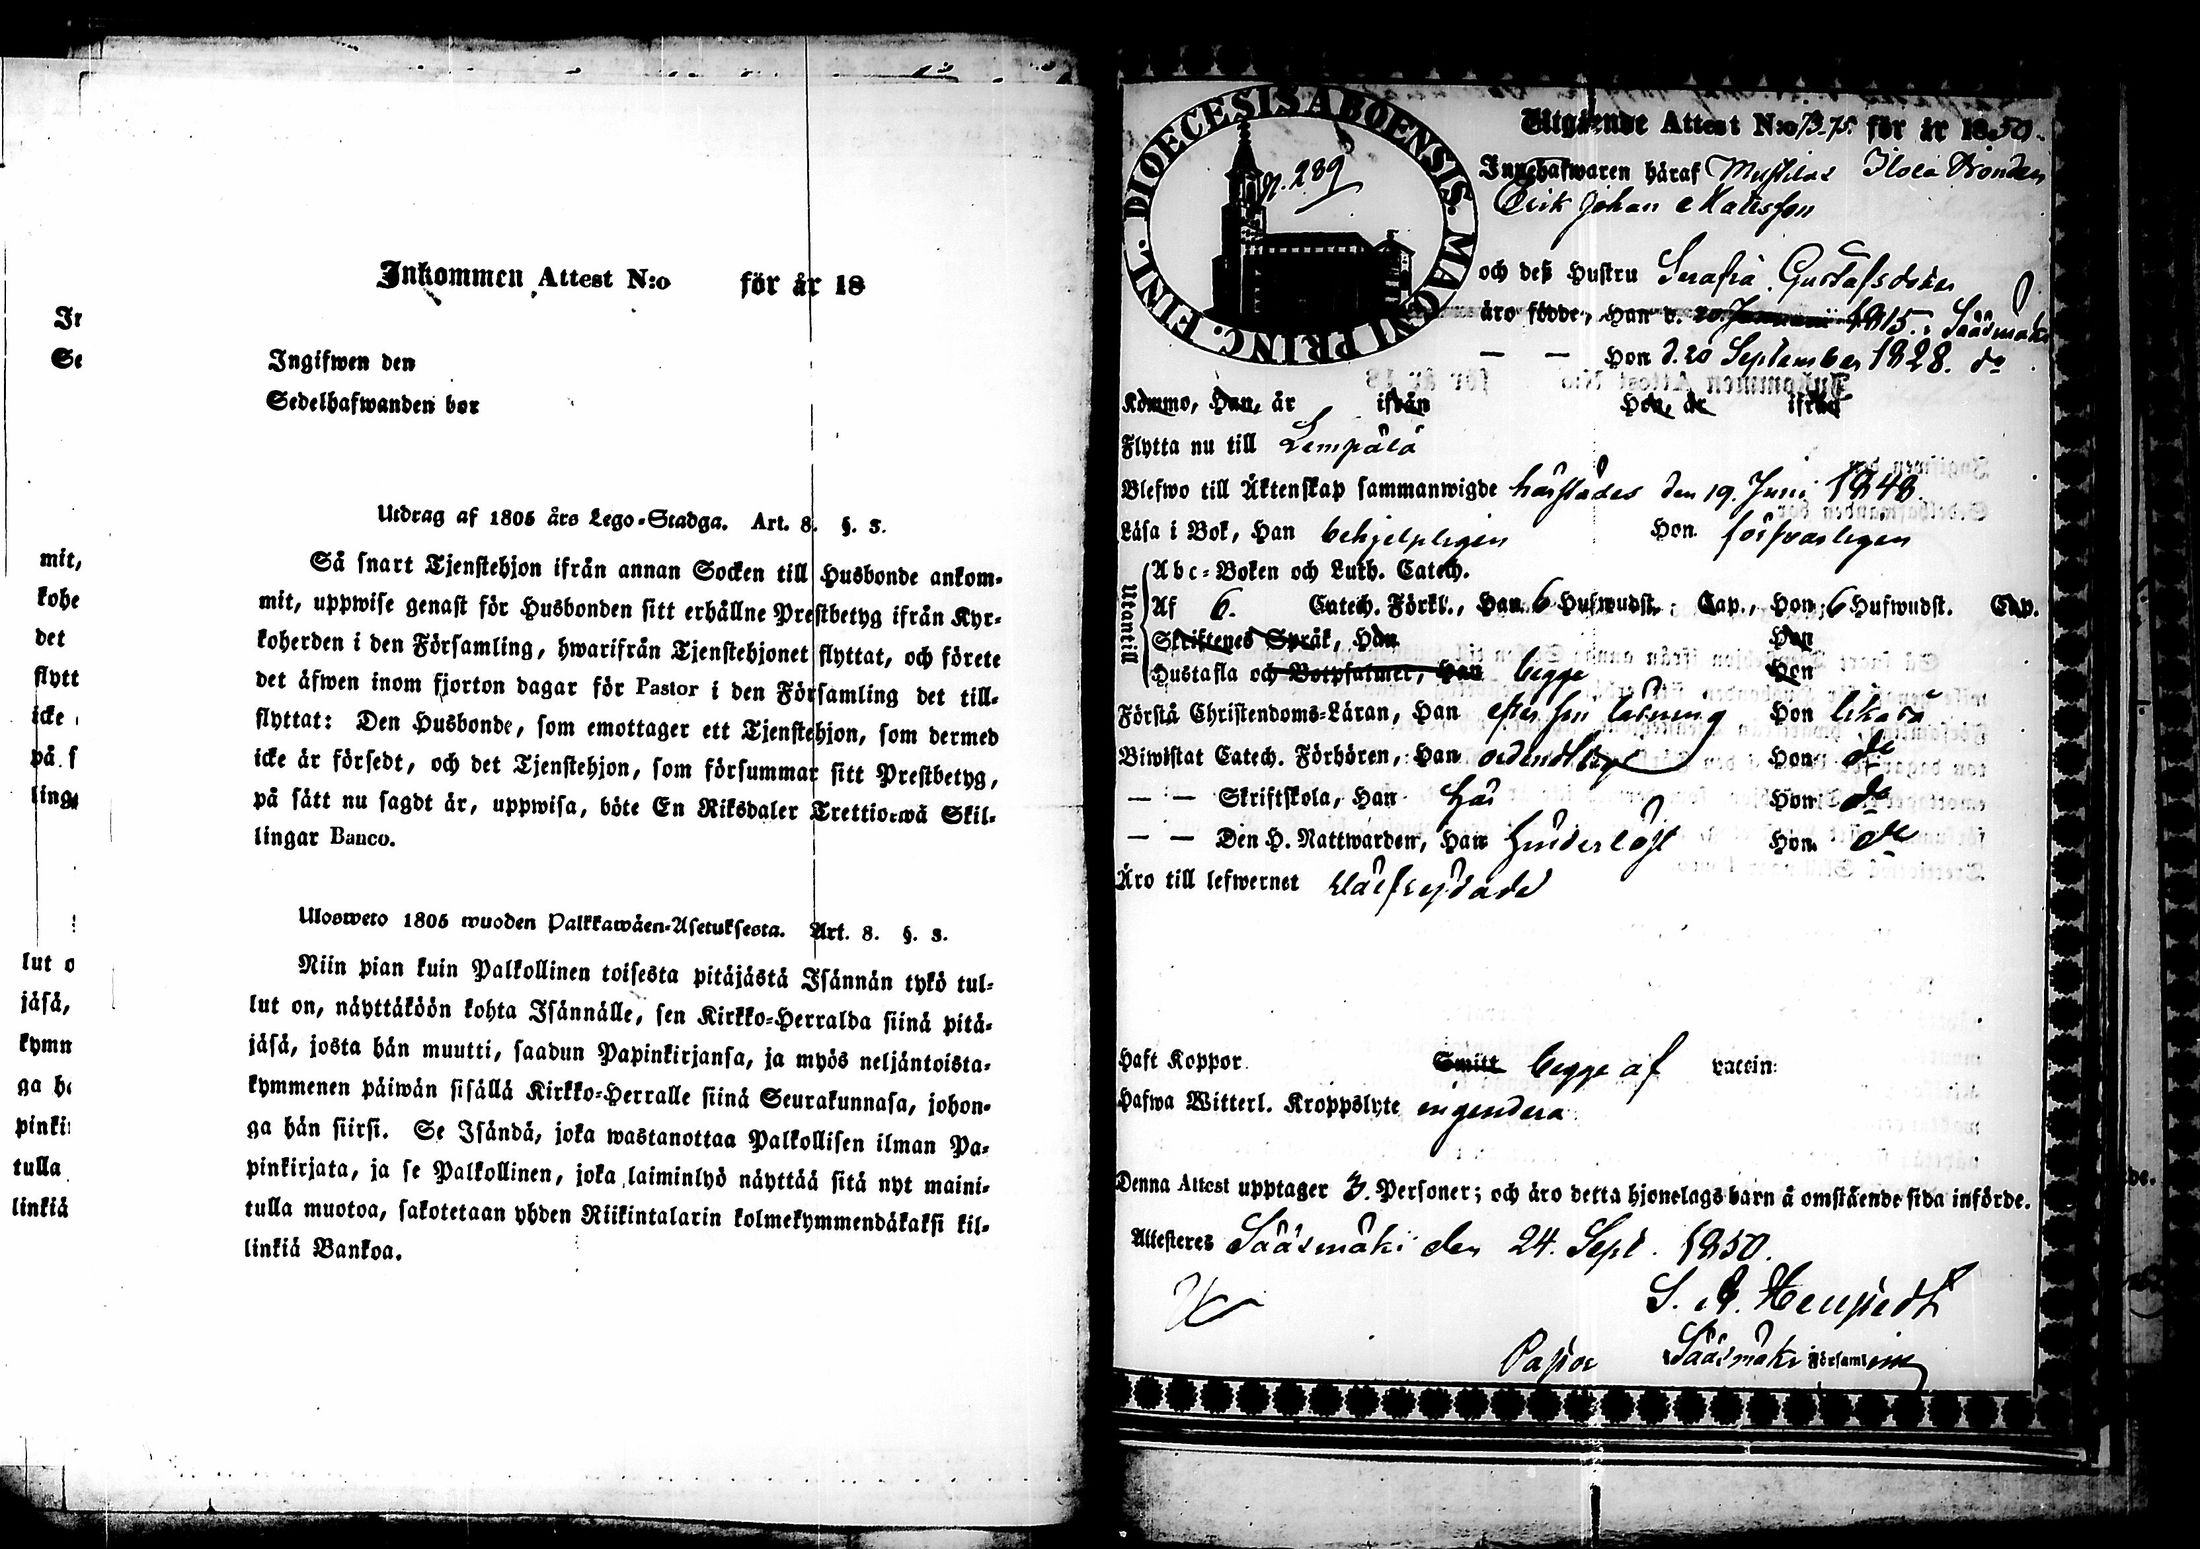 Inkommen Attest N:o för år 18
Ingifwen den
Sedelhafwanden bor
Utdrag af 1805 års Lego-Stadga. Art. 8. §. 3.
Så snart Tjenstehjon ifrån annan Socken till Husbonde ankom-
mit, uppwise genast för Husbonden sitt erhållne Prestbetyg ifrån Kyr-
koherden i den Församling, hwarifrån Tjenstehjonet flyttat, och förete
det äfwen inom fjorton dagar för Pastor i den Församling det till-
flyttat: Den Husbonde, som emottager ett Tjenstehjon, som dermed
icke är försedt, och det Tjenstehjon, som försummar sitt Prestbetyg,
på sätt nu sagdt är, uppwisa, böte En Riksdaler Trettiotwå Skil-
lingar Banco.
Ulosweto 1805 wuoden Palkkawäen-Asetuksesta. Art. 8. §. 3.
Niin pian kuin Palkollinen toisesta pitäjästä Isännän tykö tul-
lut on, näyttäköön kohta Isännälle, sen Kirkko-Herralda siinä pitä-
jäsä, josta hän muutti, saadun Papinkirjansa, ja myös neljäntoista-
kymmenen päiwän sisällä Kirkko-Herralle siinä Seurakunnasa, johon-
ga hän siirsi. Se Isändä, joka wastanottaa Palkollisen ilman Pa-
pinkirjata, ja se Palkollinen, joka laiminlyö näyttää sitä nyt maini-
tulla muotoa, sakotetaan yhden Riikintalarin kolmekymmendäkaksi kil-
linkiä Bankoa.
DIOECESIS ABOENSIS. MAGNI PRINC. FINL.
N. 289
Utgående Attest N:o 73-75. för år 1850.
Innehafwaren häraf Ilola Bonden
Erik Johan Mattsson
och deß Hustru Serafia Gustafsdoter
äro födde, Han d. 20 Januari 1815. i Sääsmäki
— — Hon d. 20 September 1828. do
Kommo, Han, år ifrån Hon, år ifrån
Flytta nu till Lempälä
Blefwo till Äktenskap sammanwigde härstädes den 19. Juni 1848.
Läsa i Bok, Han behjelpligen Hon försvarligen
Utantill
Abc-Boken och Luth. Catech.
Af 6. Catech. Förkl., Han 6 Hufwudst. Cap., Hon 6 Hufwudst. Cap.
Skriftenes Språk, Han Hon
Hustafla och Botpsalmer, Han begge Hon
Förstå Christendoms-Läran, Han efter sin läsning Hon likaså
Biwistat Catech. Förhören, Han ordentligt Hon do
— — Skriftskola, Han här Hon do
— — Den H. Nattwarden, Han hinderlöst Hon do
Äro till lefwernet wälfrejdade
Haft Koppor. Smitt begge af vaccin:
Hafwa Witterl. Kroppslyte ingendera
Denna Attest upptager 3. Personer; och äro detta hjonelags barn å omstående sida införde.
Attesteres Sääsmäki den 24. Sept. 1850.
Sääsmäki Församling